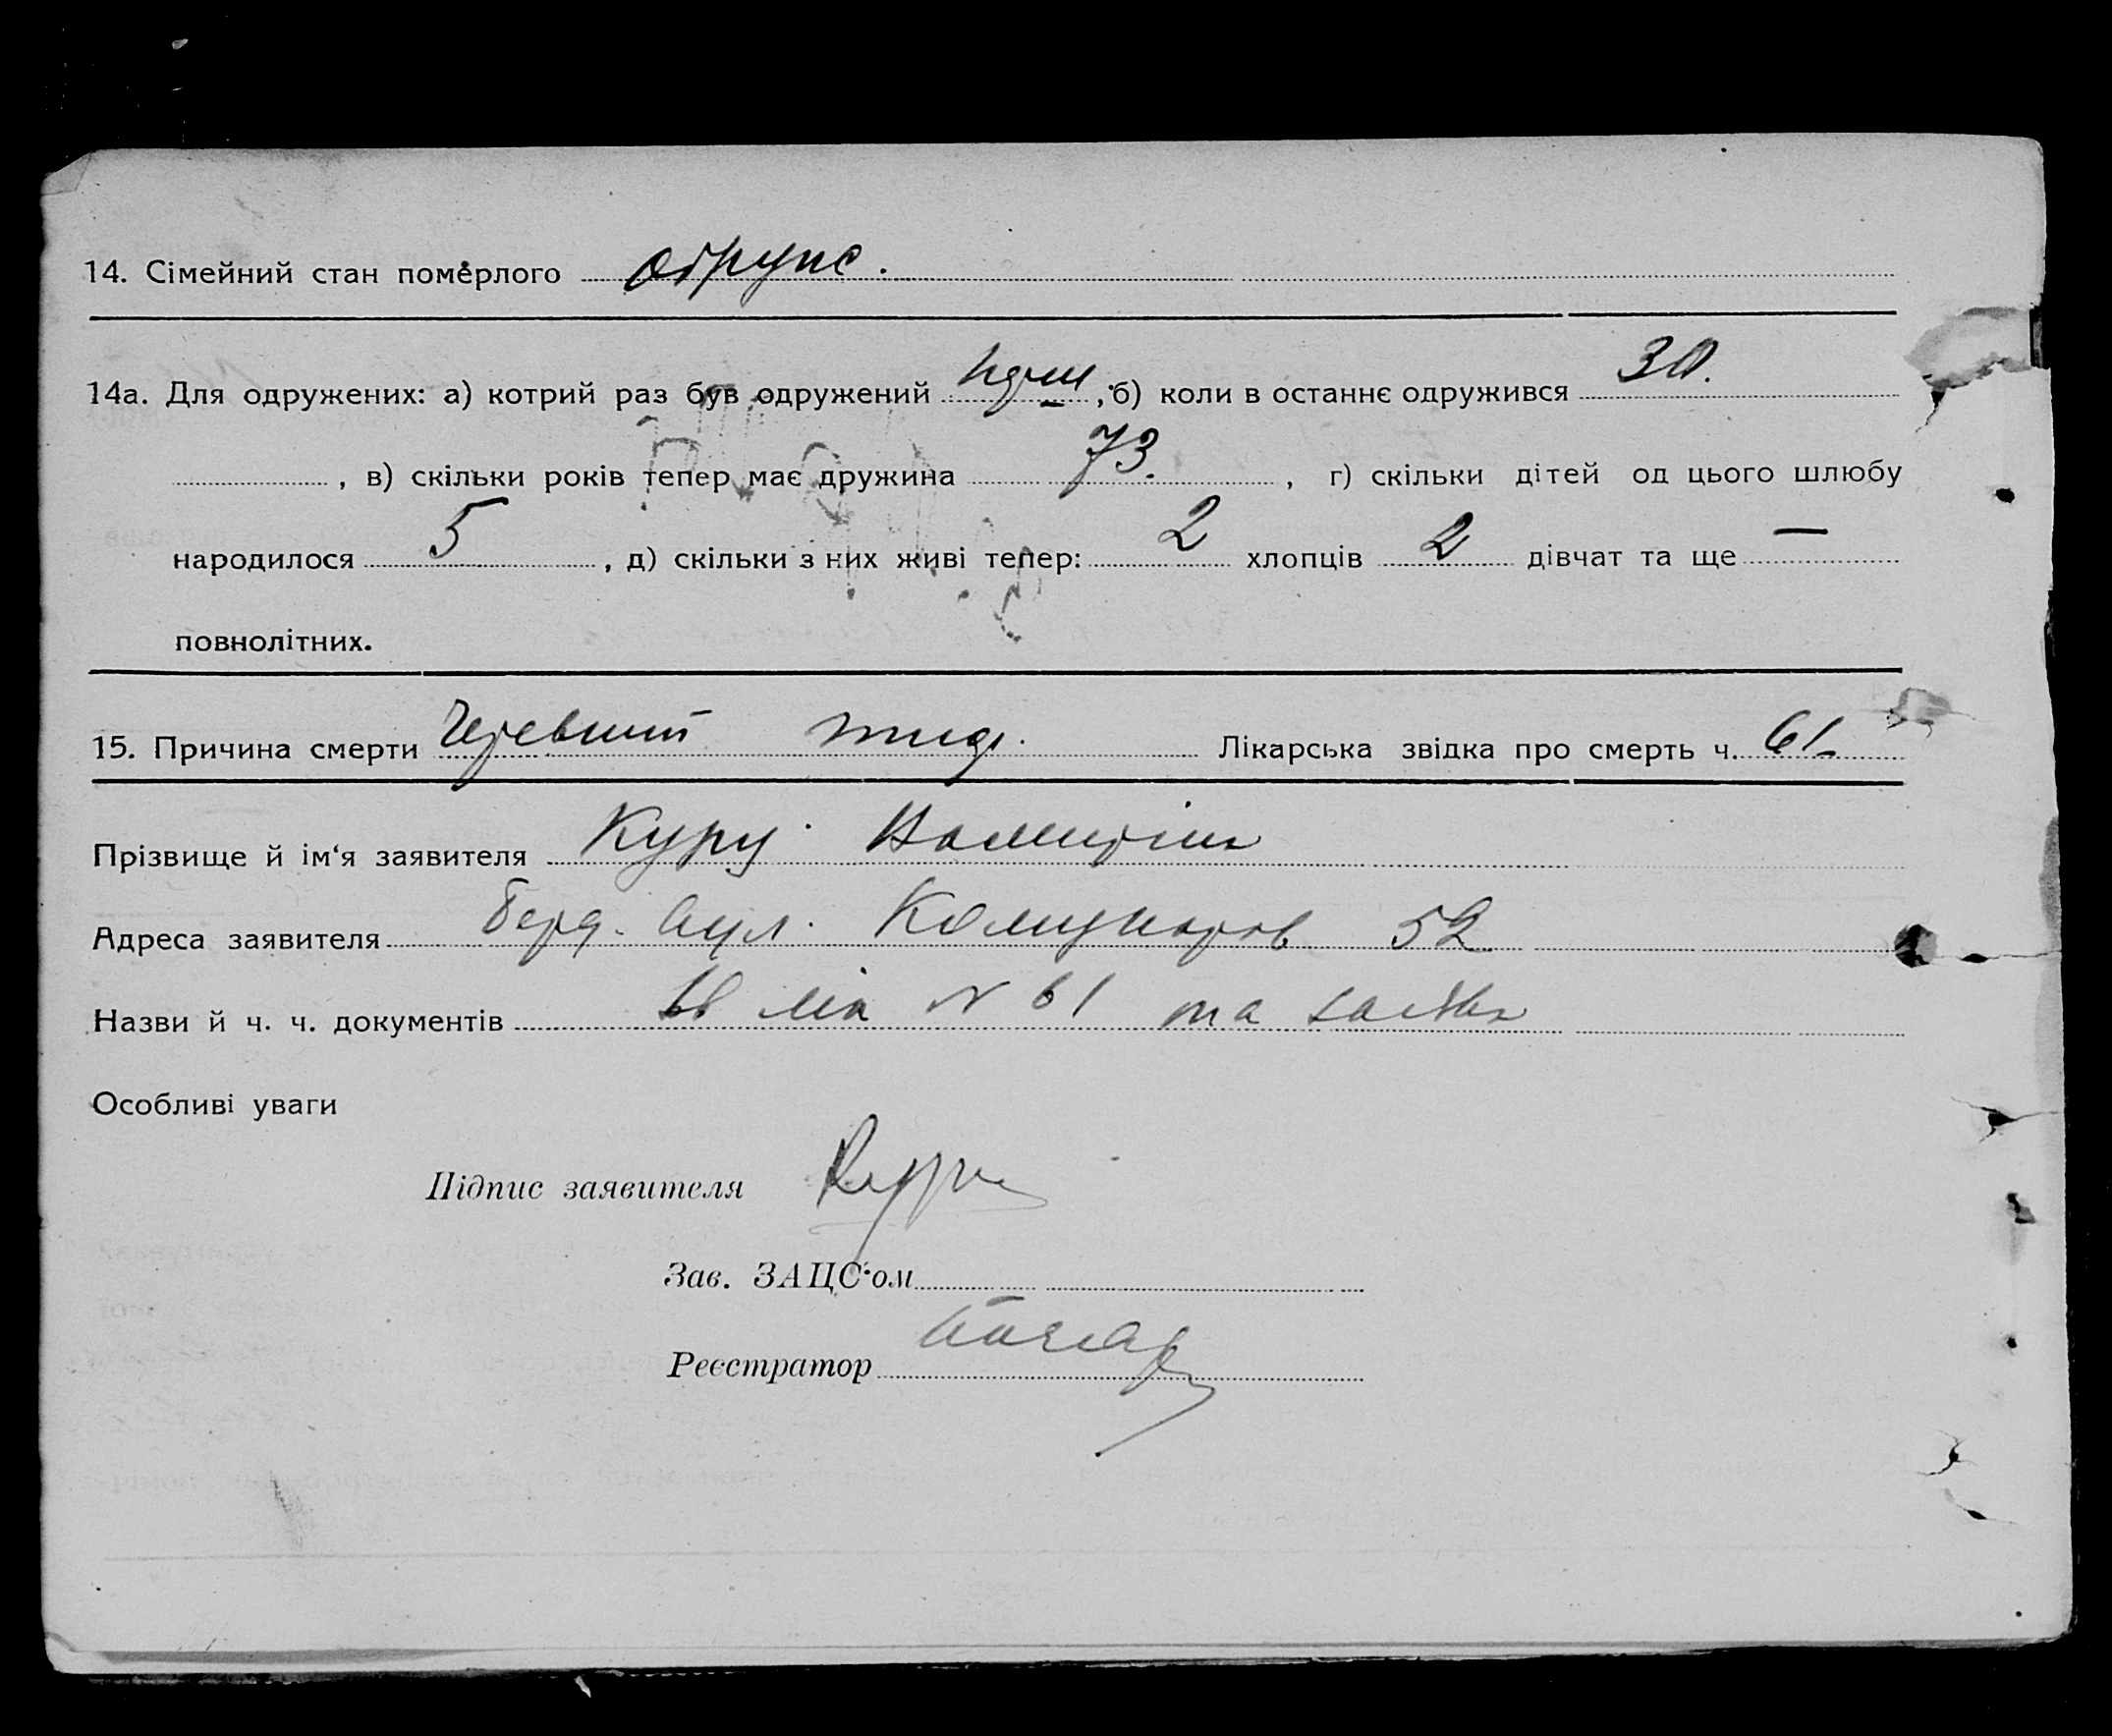 14. Сімейний стан померлого
14а. Для одружених: а) котрий раз був одружений , б) коли в останнє одружився 30.
, в) скільки років тепер має дружина 73. , г) скільки дітей од цього шлюбу
народилося 5 , д) скільки з них живі тепер: 2 хлопців 2 дівчат та ще —
повнолітних.
15. Причина смерти Черевний тиф. Лікарська звідка про смерть ч. 61
Прізвище й ім'я заявителя
Адреса заявителя Берд. вул. Комунаров 52
Назви й ч. ч. документів N 61 та заява
Особливі уваги
Підпис заявителя
Зав. ЗАЦС'ом
Реєстратор